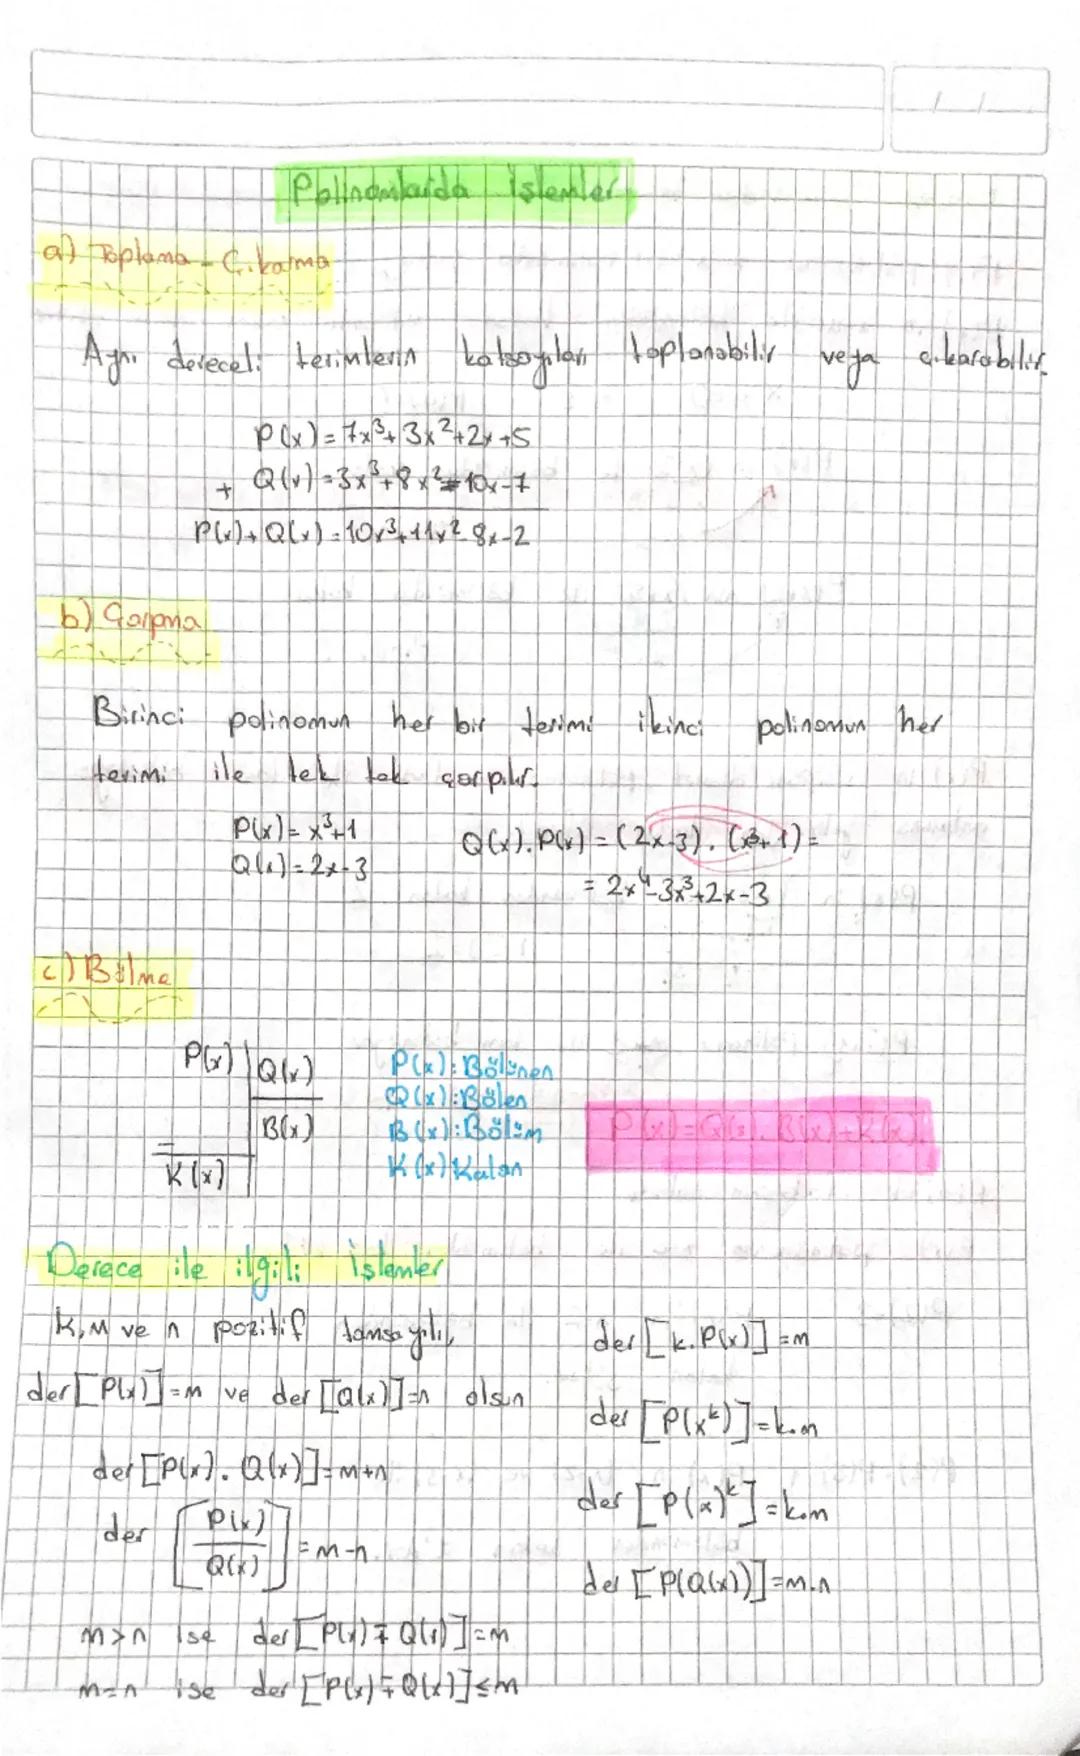 Polinomlarda İşlemler
a) Toplama - Çıkarma
Aynı dereceli terimlerin katsayıları toplanabilir veya çıkarabilir.
P(x) = 7x³ + 3x² + 2x + 5
+ Q(x) = 3x³ + 8x² - 10x - 7
P(x) + Q(x) = 10x³ + 11x² - 8x - 2
b) Çarpma
Birinci polinomun her bir terimi ikinci polinomun her
terimi ile tek tek çarpılır.
P(x) = x³ + 1
Q(x) = 2x - 3
Q(x) . P(x) = (2x - 3) . (x³ + 1) =
= 2x⁴ - 3x³ + 2x - 3
c) Bölme
P(x) Q(x)
B(x)
K(x)
P(x): Bölünen
Q(x): Bölen
B(x): Bölüm
K(x) Kalan
P(x) = Q(x) . B(x) + K(x)
Derece ile ilgili İşlemler
K, M ve n pozitif tamsayılı,
der [P(x)] = m ve der [Q(x)] = n olsun
der [P(x) . Q(x)] = m + n
der [P(x) / Q(x)] = m - n
m > n ise der [P(x) ∓ Q(x)] = m
m = n ise der [P(x) ∓ Q(x)] ≤ m
der [k . P(x)] = m
der [P(xᵏ)] = k . m
der [P(x)ᵏ] = k . m
der [P(Q(x))] = m . n